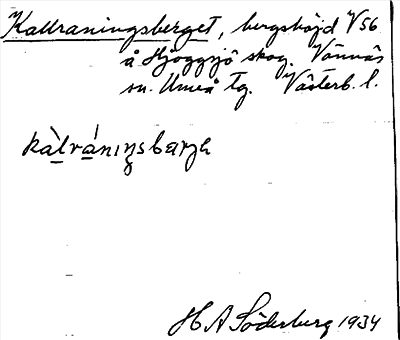 Kallraningsberget, bergshöjd V 56
å Hjoggsjö skog. Vännäs
sn. Umeå tg. Västerb. l.
kàlránıŋsbærjə
H A Söderberg 1934